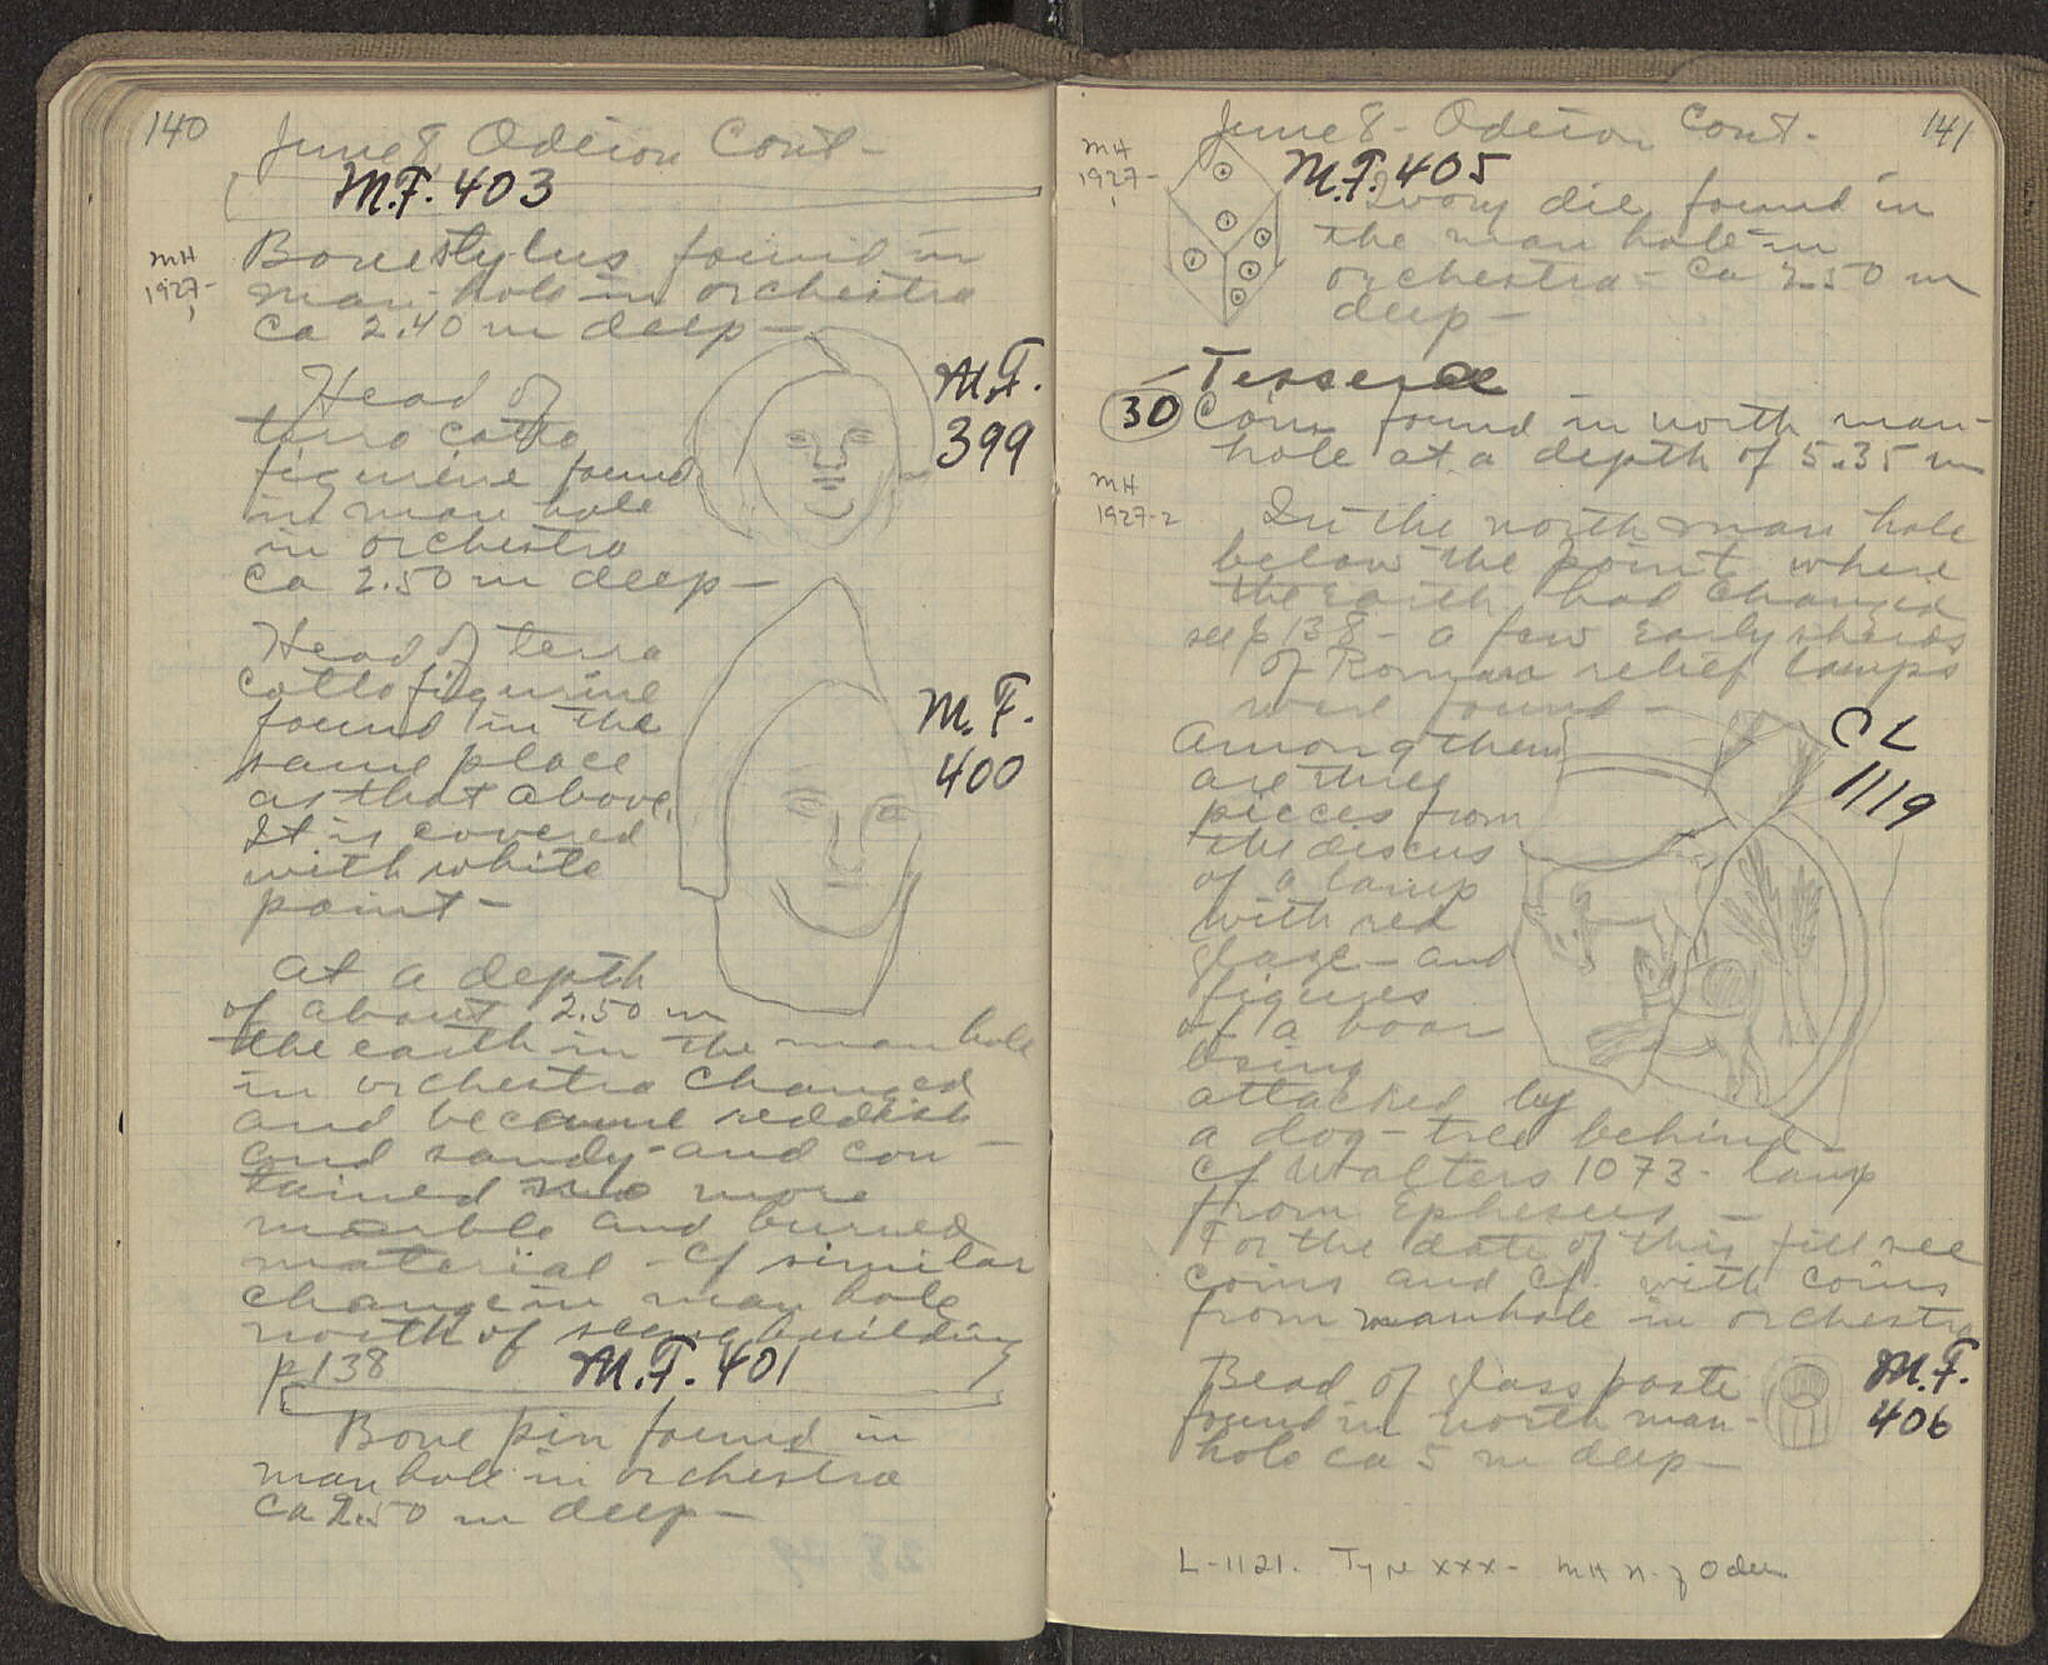 140
June 8, Odeion Cont-
M.F. 403
MH
1927-
1
Bone stylus found in
man-hole in orchestra
ca 2.40 m deep-
Head of
terra cotta
figurine found
in man hole
in orchestra
ca 2.50 m deep-
M.F.
399
Head of terra
cotta figurine
found in the
same place
as that above.
It is covered
with white
paint-
M.F.
400
at a depth
of about 2.50 m
the earth in the man hole
in orchestra changed
and became reddish
and sandy-and con-
tained no more
marble and burned
material - cf similar
change in man hole
north of scene building
p 138
M.F. 401
Bone pin found in
man hole in orchestra
ca 2.50 m deep-
141
June 8- Odeion Cont.-
MH
1927-
1
M.F. 405
Ivory die, found in
the man hole in
orchestra- ca 2.50 m
deep-
Tessera
30 Coin found in north man-
hole at a depth of 5.35 m
MH
1927-2
In the north man hole
below the point where
the earth had changed
see p 138- a few early sherds
of Roman relief lamps
were found-
Among them
are three
pieces from
the discus
of a lamp
with red
glaze-and
figures
of a boar
being
attacked by
a dog-tree behind-
cf Walters 1073- lamp
from Ephesus-
For the date of this fill see
coins and cf. with coins
from manhole in orchestra
CL
1119
Bead of glass paste
found in north man-
hole ca 5 m deep-
M.F.
406
L-1121. Type XXX- MH N. of Odeion